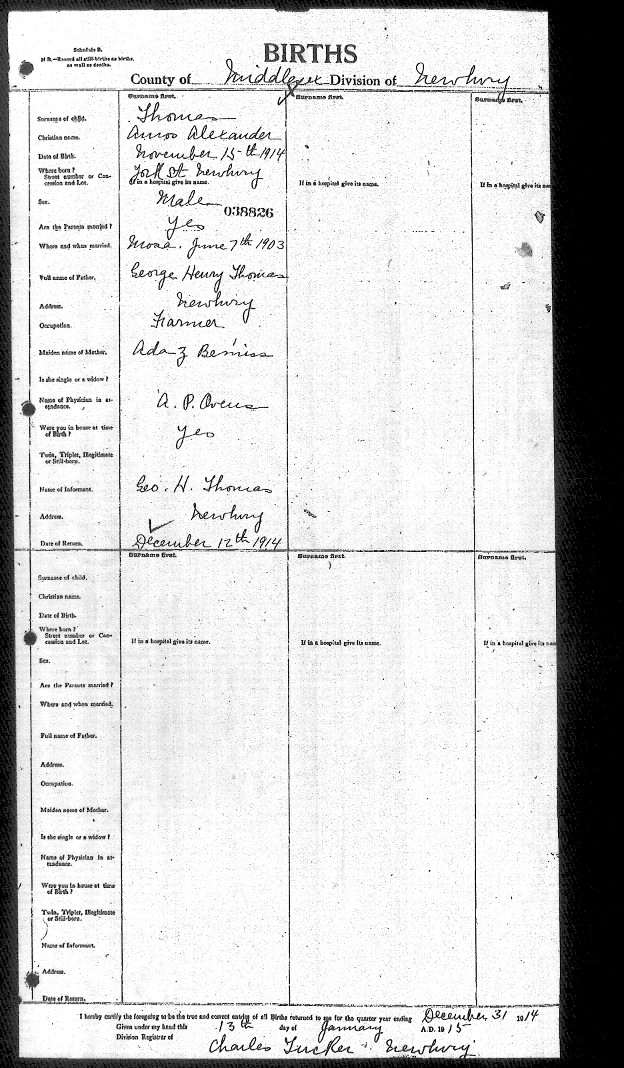 Schedule B.
N B.—Record all still-births as births,
as well as deaths.
BIRTHS
County of Middlesex Division of Newbury
Surname first. Surname first. Surname first.
Surname of child. Thomas
Christian name. Amos Alexander
Date of Birth. November 15th 1914
Where born? York St. Newbury
Street number or Concession and Lot. If in a hospital give its name. If in a hospital give its name. If in a hospital give its name
Sex. Male
038826
Are the Parents married? Yes
Where and when married. Mosa. June 7th 1903
Full name of Father. George Henry Thomas
Address. Newbury
Occupation. Farmer
Maiden name of Mother. Ada Z Bemiss
Is she single or a widow?
Name of Physician in attendance. A. P. Owens
Were you in house at time of Birth? Yes
Twin, Triplet, Illegitimate
or Still-born.
Name of Informant. Geo. H. Thomas
Address. Newbury
Date of Return. December 12th 1914
Surname first. Surname first. Surname first.
Surname of child.
Christian name.
Date of Birth.
Where born?
Street number or Concession and Lot. If in a hospital give its name. If in a hospital give its name. If in a hospital give its name
Sex.
Are the Parents married?
Where and when married.
Full name of Father.
Address.
Occupation.
Maiden name of Mother.
Is she single or a widow?
Name of Physician in attendance.
Were you in house at time
of Birth?
Twin, Triplet, Illegitimate
or Still-born.
Name of Informant.
Address.
Date of Return.
I hereby certify the foregoing to be the true and correct entries of all Births returned to me for the quarter year ending December 31 1914
Given under my hand this 13th day of January A.D. 1915
Division Registrar of Charles Tucker Newbury